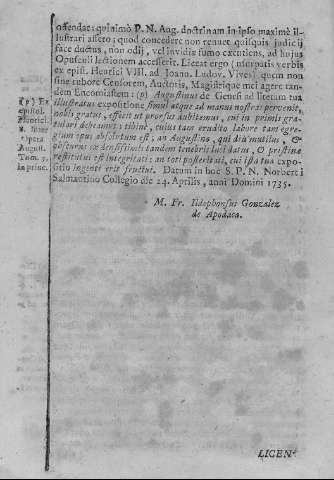 offendat: quinimò P. N. Aug. doctrinam in ipso maximè il-
lustrari assero; quod concedere non renuet quisquis judicij
face ductus, non odij, vel invidiæ fumo excutiens, ad hujus
Opusculi lectionem accesserit. Liceat ergo (usurpatis verbis
ex epist. Henrici VIII. ad Joann. Ludov. Vives) quem non
sine rubore Censorem, Auctoris, Magistrique mei agere tan-
dem Encomiastem: (p) Augustinus de Genesi ad literam tua
illustratus expositione simul atque ad manus nostras pervenit,
nobis gratus, effecit ut prorsus ambitemus, cui in primis gra-
tulari debeamus: tibi ne, cuius tam erudito labore tam egre-
gium opus absolutum est, an Augustino, qui diu mutilus, &
obscurus ex densissimis tandem tenebris luci datus, & pristinæ
restitutus est integritati: an toti posteritati, cui ista tua expo-
sitio ingenti erit fructui. Datum in hoc S. P. N. Norberti
Salmantino Collegio die 24. Aprilis, anni Domini 1735.
(p) Ex
epistol.
Henrici
8. inter
Opera
August.
Tom. 5.
in princ.
M. Fr. Ildephonsus Gonzalez
de Apodaca.
LICEN-